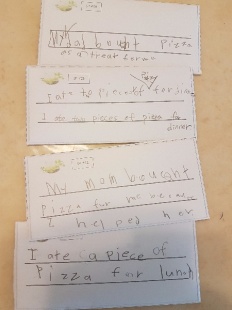 My Dad bought pizza
as a treat for me
I ate piece for
I ate two pieces of pizza for
dinner
My Mom bought
Pizza for me because
I helped her
I ate a piece of
Pizza for lunch